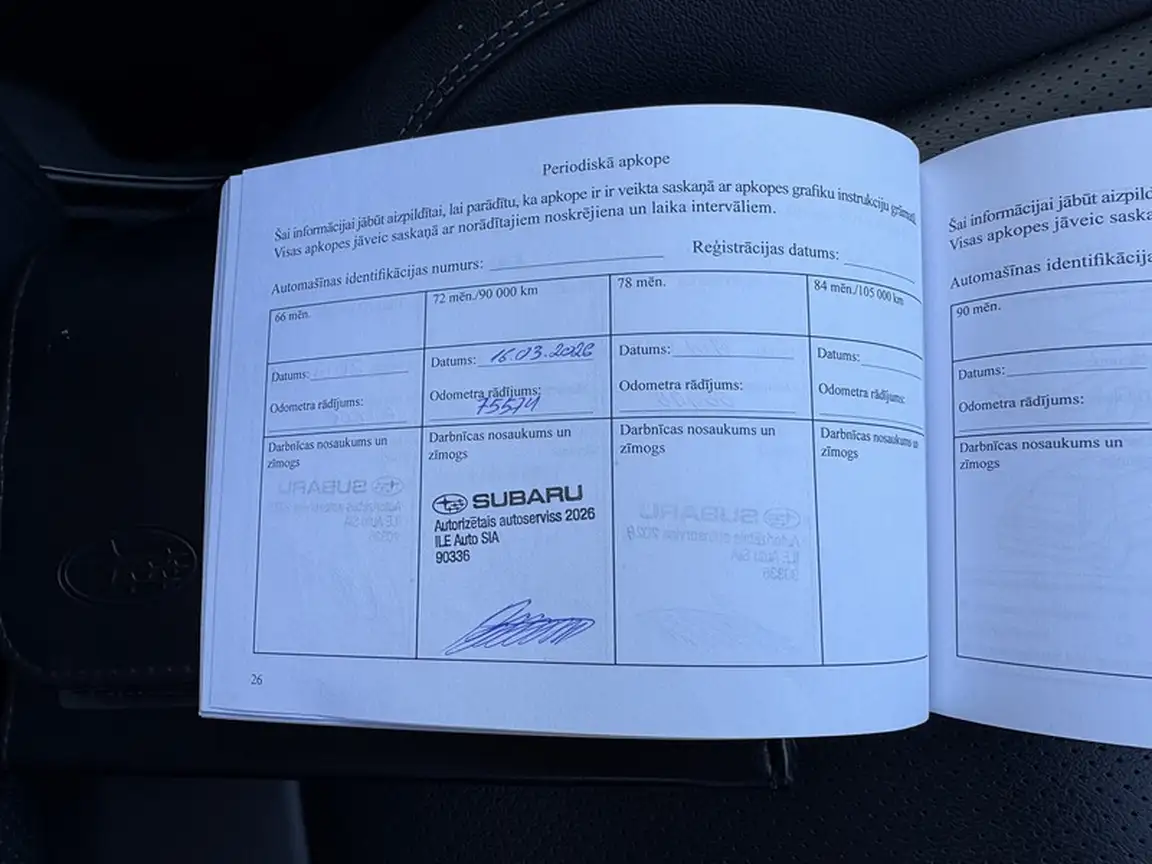 Periodiskā apkope
Šai informācijai jābūt aizpildītai, lai parādītu, ka apkope ir ir veikta saskaņā ar apkopes grafiku instrukciju
Visas apkopes jāveic saskaņā ar norādītajiem noskrējiena un laika intervāliem.
Automašīnas identifikācijas numurs:
Reģistrācijas datums:
66 mēn.
Datums:
Odometra rādījums:
Darbnīcas nosaukums un
zīmogs
72 mēn./90 000 km
Datums: 16.03.2026
Odometra rādījums:
75574
Darbnīcas nosaukums un
zīmogs
SUBARU
Autorizētais autoserviss 2026
ILE Auto SIA
90336
78 mēn.
Datums:
Odometra rādījums:
Darbnīcas nosaukums un
zīmogs
84 mēn./105 000 km
Datums:
Odometra rādījums:
Darbnīcas nosaukums un
zīmogs
26
Šai informācijai jābūt
Visas apkopes jāveic
Automašīnas
90 mēn.
Datums:
Odometra rādījums:
Darbnīcas nosaukums un
zīmogs